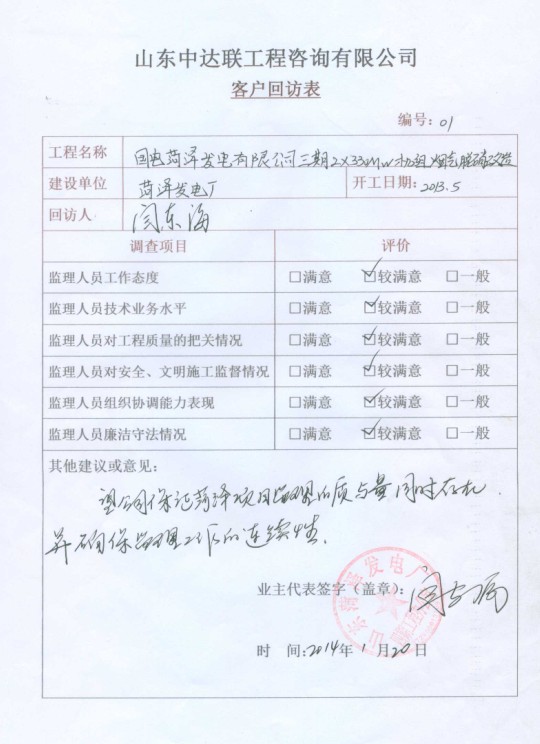 山东中达联工程咨询有限公司
客户回访表
编号：01
工程名称 国电菏泽发电有限公司三期2×330MW机组烟气脱硝改造
建设单位 菏泽发电厂 开工日期：2013.5
回访人 闫东海
调查项目 评价
监理人员工作态度 □满意 ☑较满意 □一般
监理人员技术业务水平 □满意 ☑较满意 □一般
监理人员对工程质量的把关情况 □满意 ☑较满意 □一般
监理人员对安全、文明施工监督情况 □满意 ☑较满意 □一般
监理人员组织协调能力表现 □满意 ☑较满意 □一般
监理人员廉洁守法情况 □满意 ☑较满意 □一般
其他建议或意见：
望公司保证菏泽项目监理的质与量同时存在
并确保监理工作的连续性.
业主代表签字（盖章）：
时 间：2014年 1 月 20 日